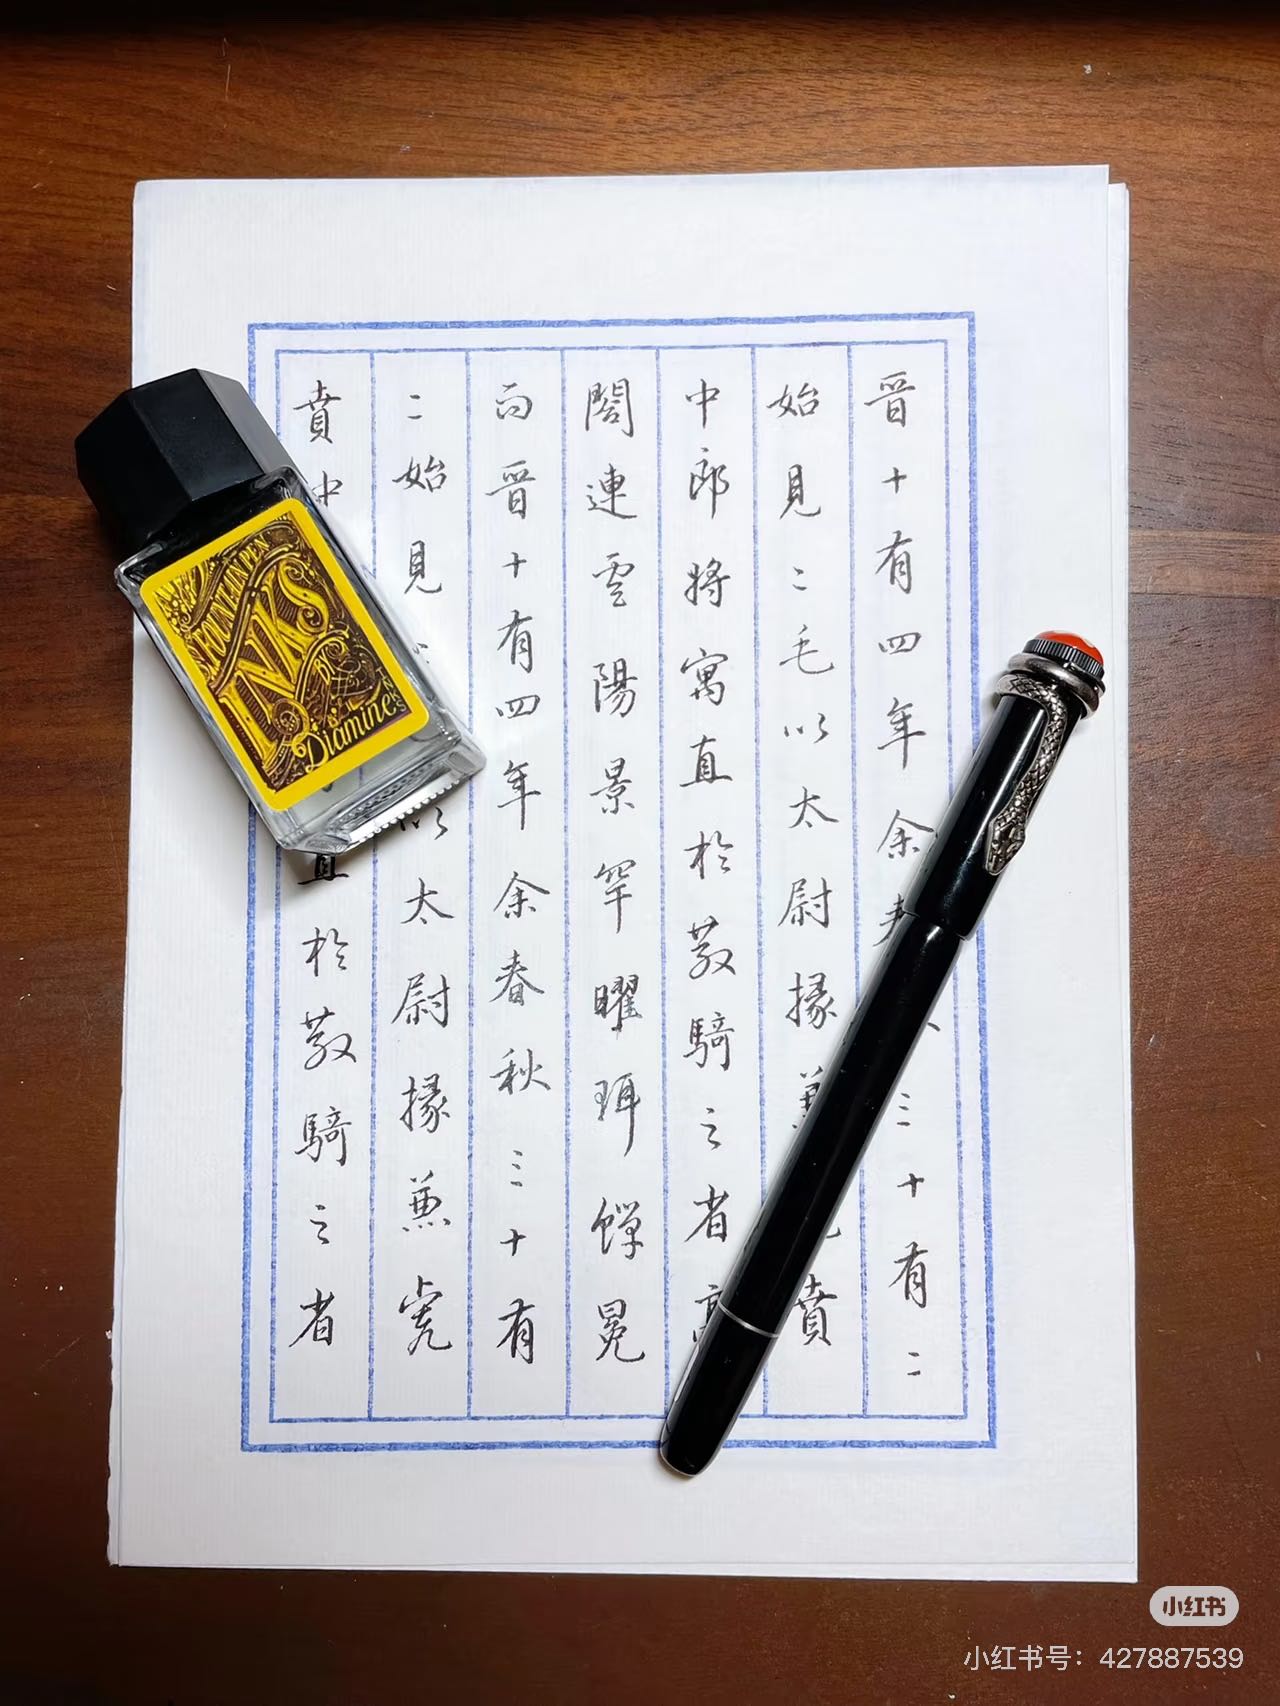 晉十有四年余三十有二
始見二毛以太尉掾兼賁
中郎將寓直於散騎之省高
閣連雲陽景罕曜珥蟬冕
而晉十有四年余春秋三十有
二始見以太尉掾兼虎
賁中直於散騎之省
FOUNTAIN PEN
INKS
Diamine
小红书
小红书号：427887539